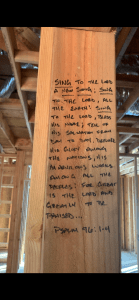 SING TO THE LORD
A NEW SONG; SING
TO THE LORD, ALL
THE EARTH. SING
TO THE LORD, BLESS
HIS NAME; TELL OF
HIS SALVATION FROM
DAY TO DAY. DECLARE
HIS GLORY AMONG
THE NATIONS, HIS
MARVELOUS WORKS
AMONG ALL THE
PEOPLES! FOR GREAT
IS THE LORD AND
GREATLY TO BE
PRAISED...
PSALM 96:1-4